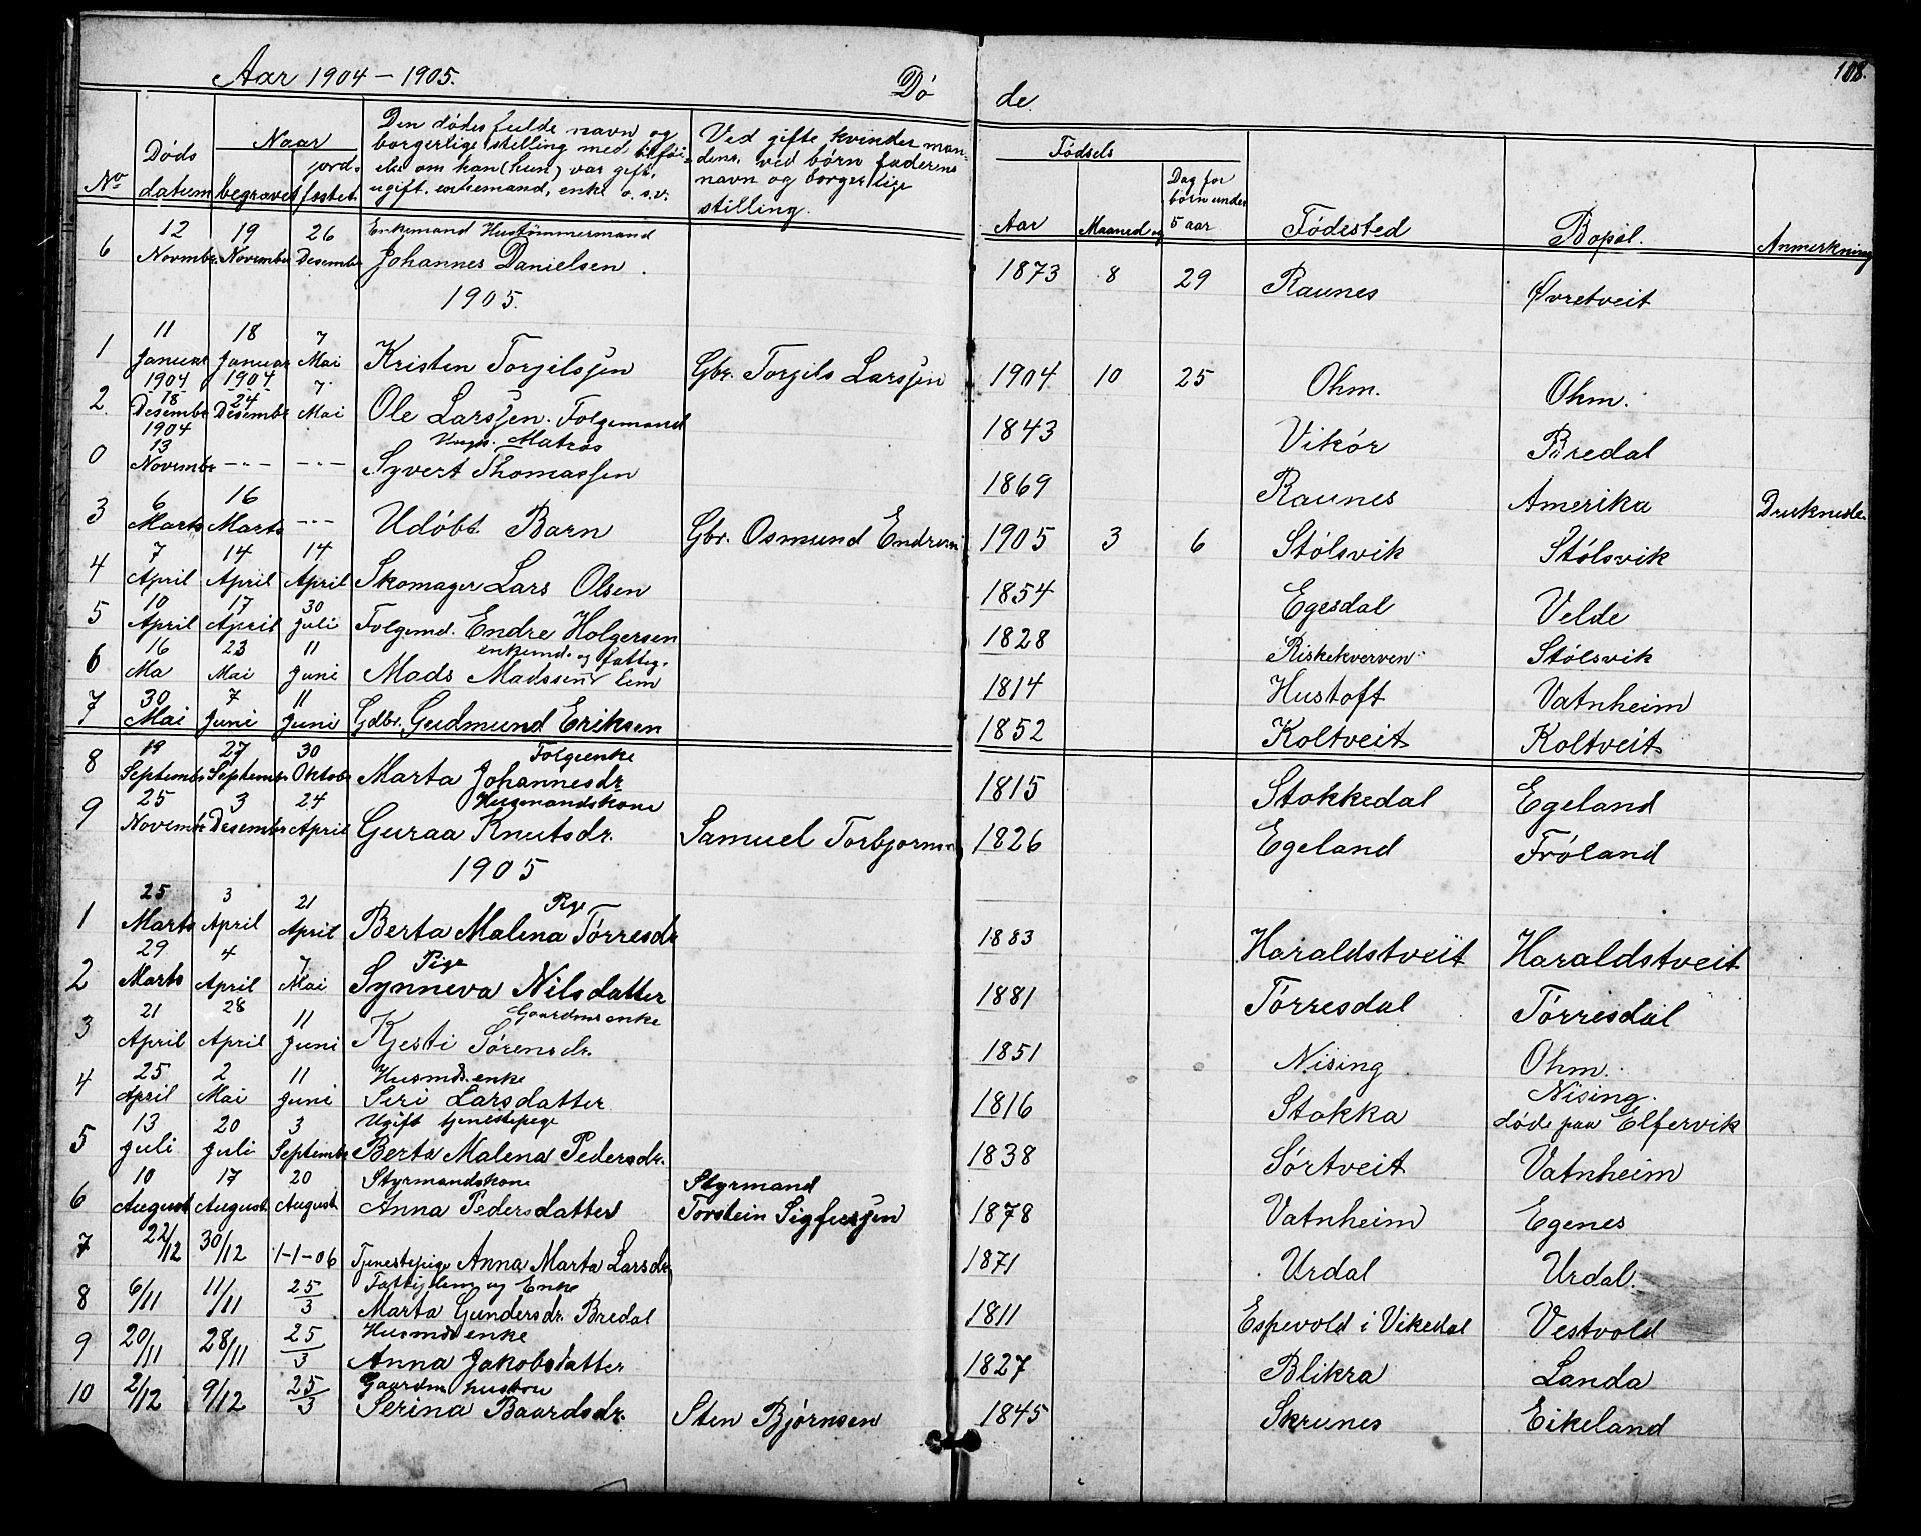 Aar 1904 – 1905. Dö de. 108.
No Döds datum Naar begravet jord- fæstet. Den dödes fulde navn og borgerlige stilling med tilföi- else om han (hun) var gift, ugift, enkemand, enke o.s.v. Ved gifte kvinder man- dens, ved börn faderens navn og borgerlige stilling. Födsels Aar Maaned og Dag for börn under 5 aar Födested Bopæl. Anmerkning
6 12 Novmbr. 19 Novembr 26 Desembr Enkemand Hustømmermand Johannes Danielsen. 1873 8 29 Raunes Øvretveit
1905.
1 11 Januar 18 Januar 7 Mai Kristen Torgilssen Gbr. Torgils Larssen 1904 10 25 Ohm. Ohm.
2. 1904 18 Desembr 1904 24 Desembr 7 Mai Ole Larssen. Folgemand 1843 Vikör Bredal
0 1904 13 Novembr --- --- Matros Syvert Thomassen 1869 Raunes Amerika Druknede.
3 6 Marts 16 Marts --- Udöbt Barn Gbr. Osmund Endresen 1905 3 6 Stölsvik Stölsvik
4 7 April 14 April 14 April Skomager Lars Olsen 1854 Egesdal Velde
5 10 April 17 April 30 Juli Folgemd. Endre Holgersen 1828 Riskekverven Stölsvik
6 16 Ma 23 Mai 11 Juni Mads Madssen enkemd. og fattig- lem 1814 Hustoft Vatnheim
7 30 Mai 7 Juni 11 Juni Gdbr. Gudmund Eriksen 1852 Koltveit Koltveit
8 19 Septembr 27 Septembr 30 Oktobr Folgeenke Marta Johannesdr 1815 Stokkedal Egeland
9 25 Novembr 3 Desembr 24 April Husmandskone Guraa Knutsdr. Samuel Torbjornsen 1826 Egeland Fröland
1905
1 25 Marts 3 April 21 April Pige Berta Malena Törresdr 1883 Haraldstveit Haraldstveit
2 29 Marts 4 April 7 Mai Pige Synneva Nilsdatter 1881 Törresdal Törresdal
3 21 April 28 April 11 Juni Gaardmsenke Kjesti Sörensdr. 1851 Nising Ohm.
4 25 April 2 Mai 11 Juni Husmds. enke Siri Larsdatter 1816 Stokka Nising. döde paa Elfervik
5 13 Juli 20 Juli 3 Septembr Ugift tjenestepege Berta Malena Pedersdr. 1838 Sörtveit Vatnheim
6 10 August 17 August 20 August Styrmandskone Anna Pedersdatter Styrmand Torstein Sigfussen 1878 Vatnheim Egenes
7 22/12 30/12 1-1-06 Tjenestepige Anna Marta Larsdr. 1871 Urdal Urdal.
8 6/11 11/11 25/3 Fattiglem og Enke Marta Gundersdr. Bredal 1811 Espevold i Vikedal Vestvold
9 20/11 28/11 25/3 Husmds enke Anna Jakobsdatter 1827 Blikra Landa
10 2/12 9/12 25/3 Gaardm hustru Serina Baardsdr. Sten Björnsen 1845 Skrunes Eikeland